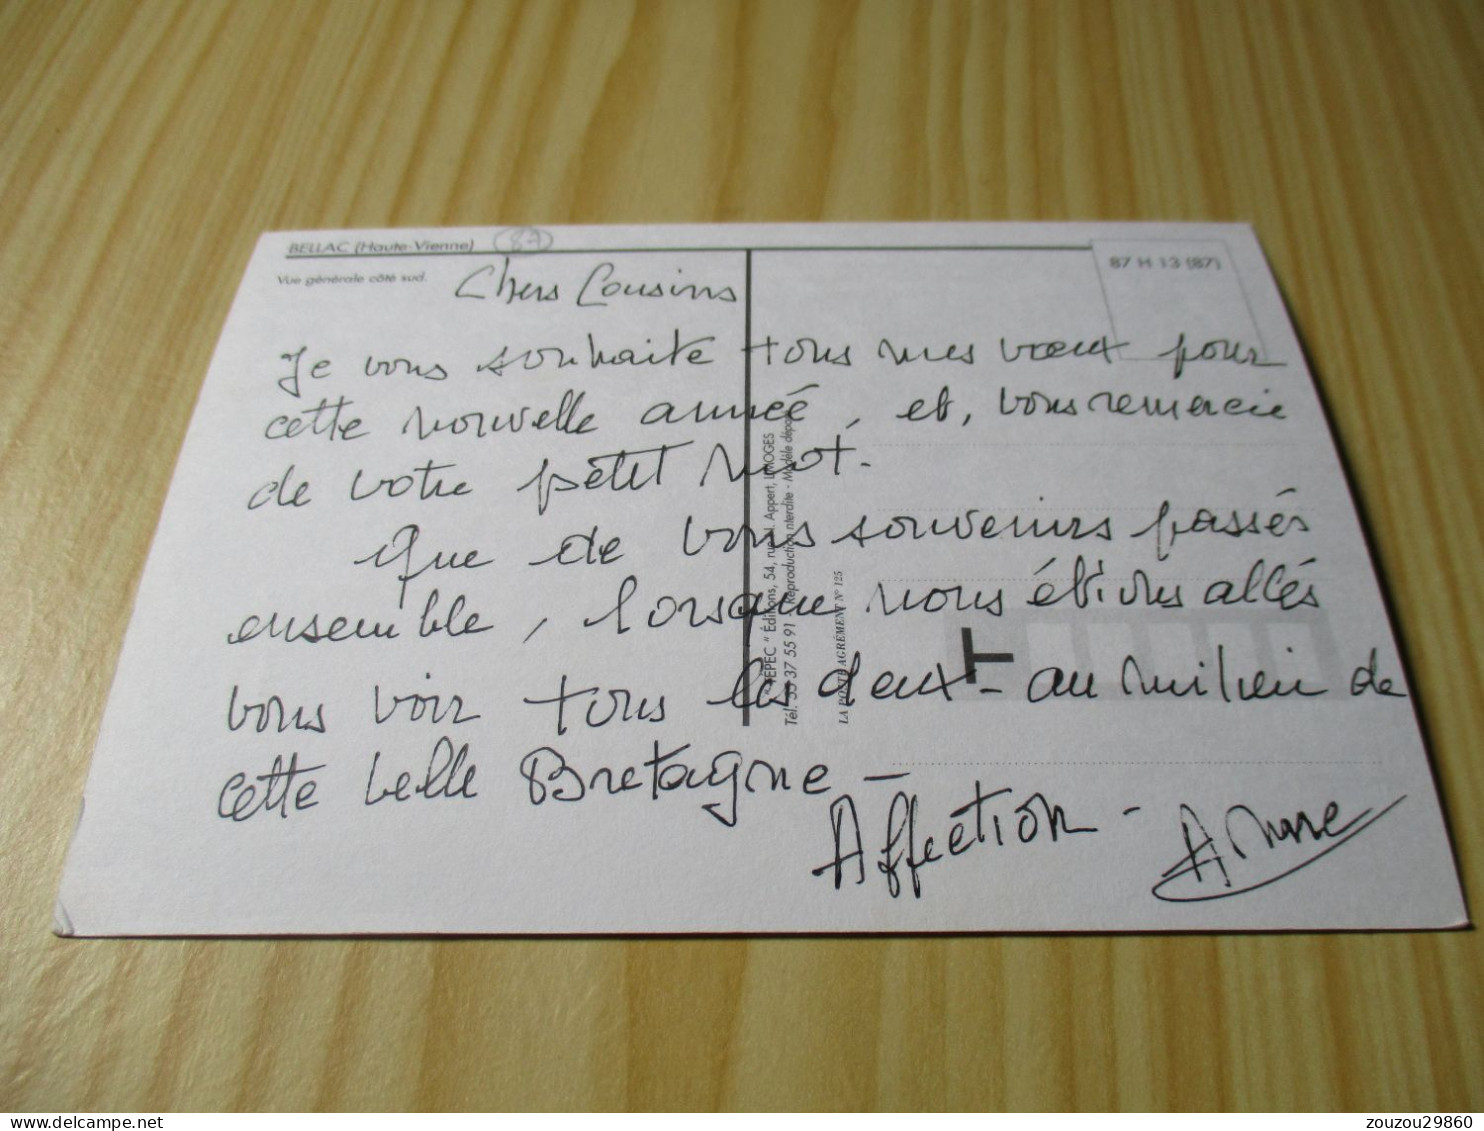 BELLAC (Haute-Vienne) (87)
Vue générale côté sud.
87 H 13 (87)
Chers Cousins
Je vous souhaite tous mes vœux pour
cette nouvelle année, et, vous remercie
de votre pétit mot.
Que de bons souvenirs passés
ensemble, lorsque nous étions allés
vous voir tous les deux - au milieu de
cette belle Bretagne -
Affection - Anne
Éditions, 54, rue N. Appert, LIMOGES
Tél. 55 37 55 91 Reproduction interdite - Modèle déposé
LA POSTE AGRÉMENT N° 125
zouzou29860